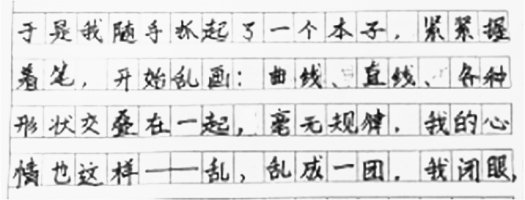 于是我随手抓起了一个本子，紧紧握
着笔，开始乱画：曲线、直线、各种
形状交叠在一起，毫无规律，我的心
情也这样——乱，乱成一团。我闭眼，